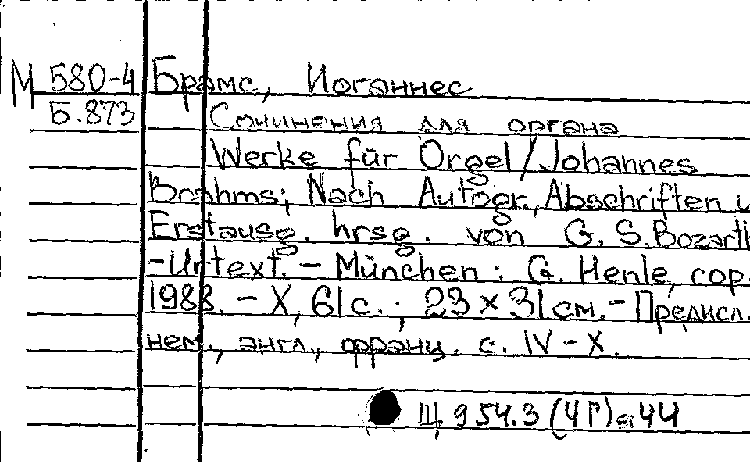 М 580-4 Брамс, Иоганнес
Б.873
Сочинения для органа
Werke für Orgel/Johannes
Brahms; Nach Autogr., Abschriften u
Erstausg. hrsg. von G. S. Bozarth
-Urtext. - München: G. Henle, cop.
1988. - X, 61 с.; 23 x 31 см. - Предисл.
нем., англ., франц. с. IV - X.
Щ 954.3 (4Г)